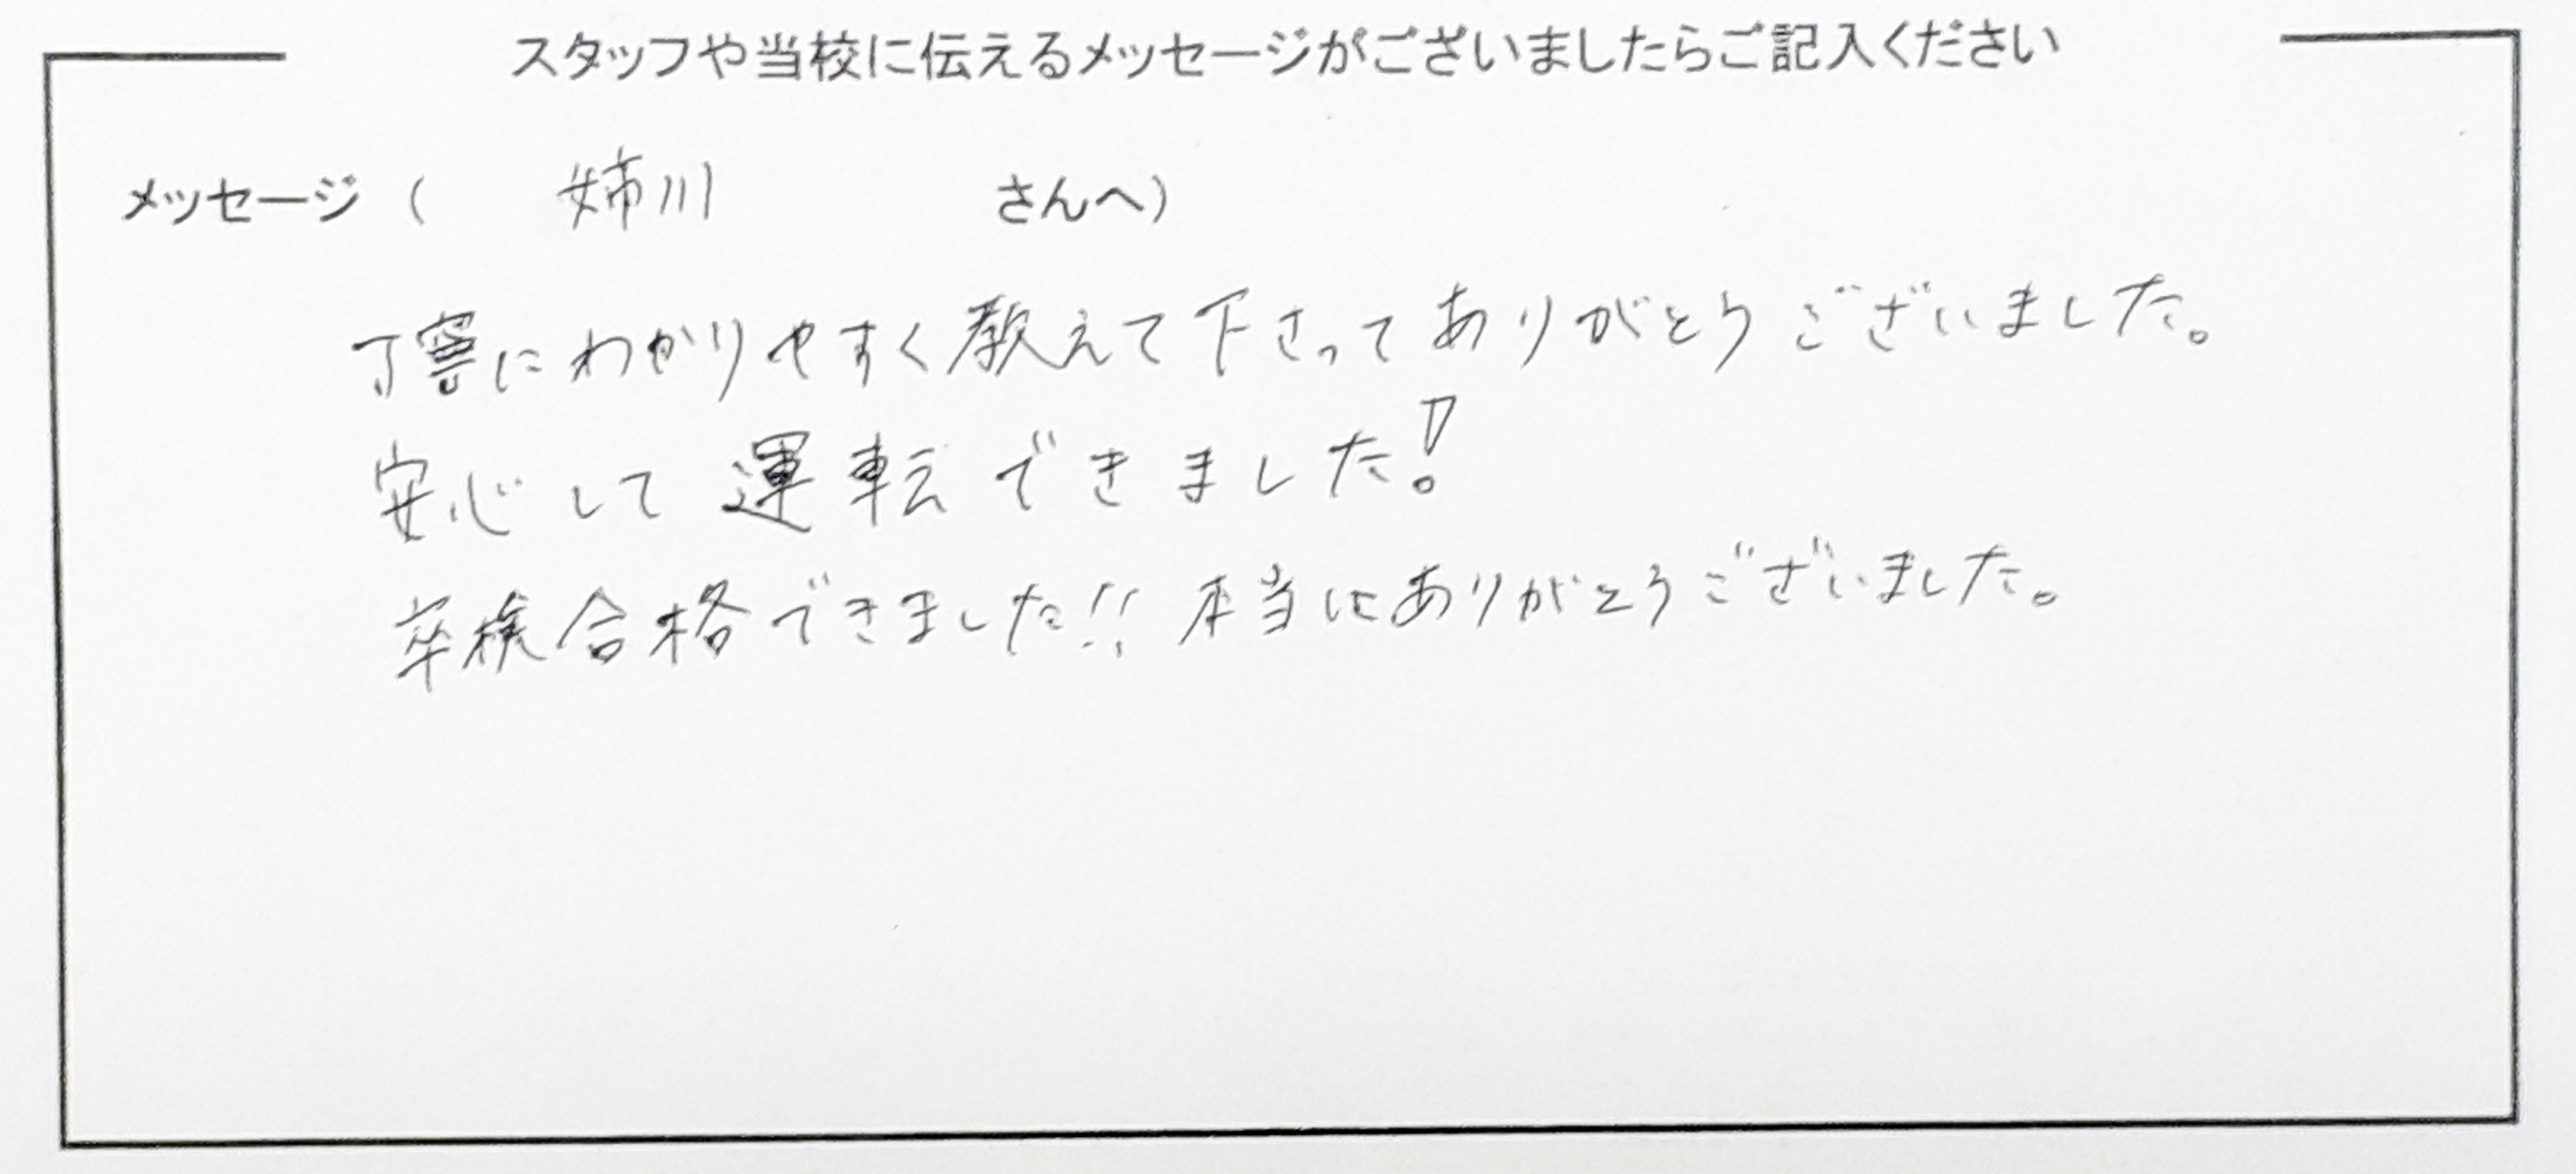 スタッフや当校に伝えるメッセージがございましたらご記入ください
メッセージ( 姉川 さんへ)
丁寧にわかりやすく教えて下さってありがとうございました。
安心して運転できました!
卒検合格できました!!本当にありがとうございました。